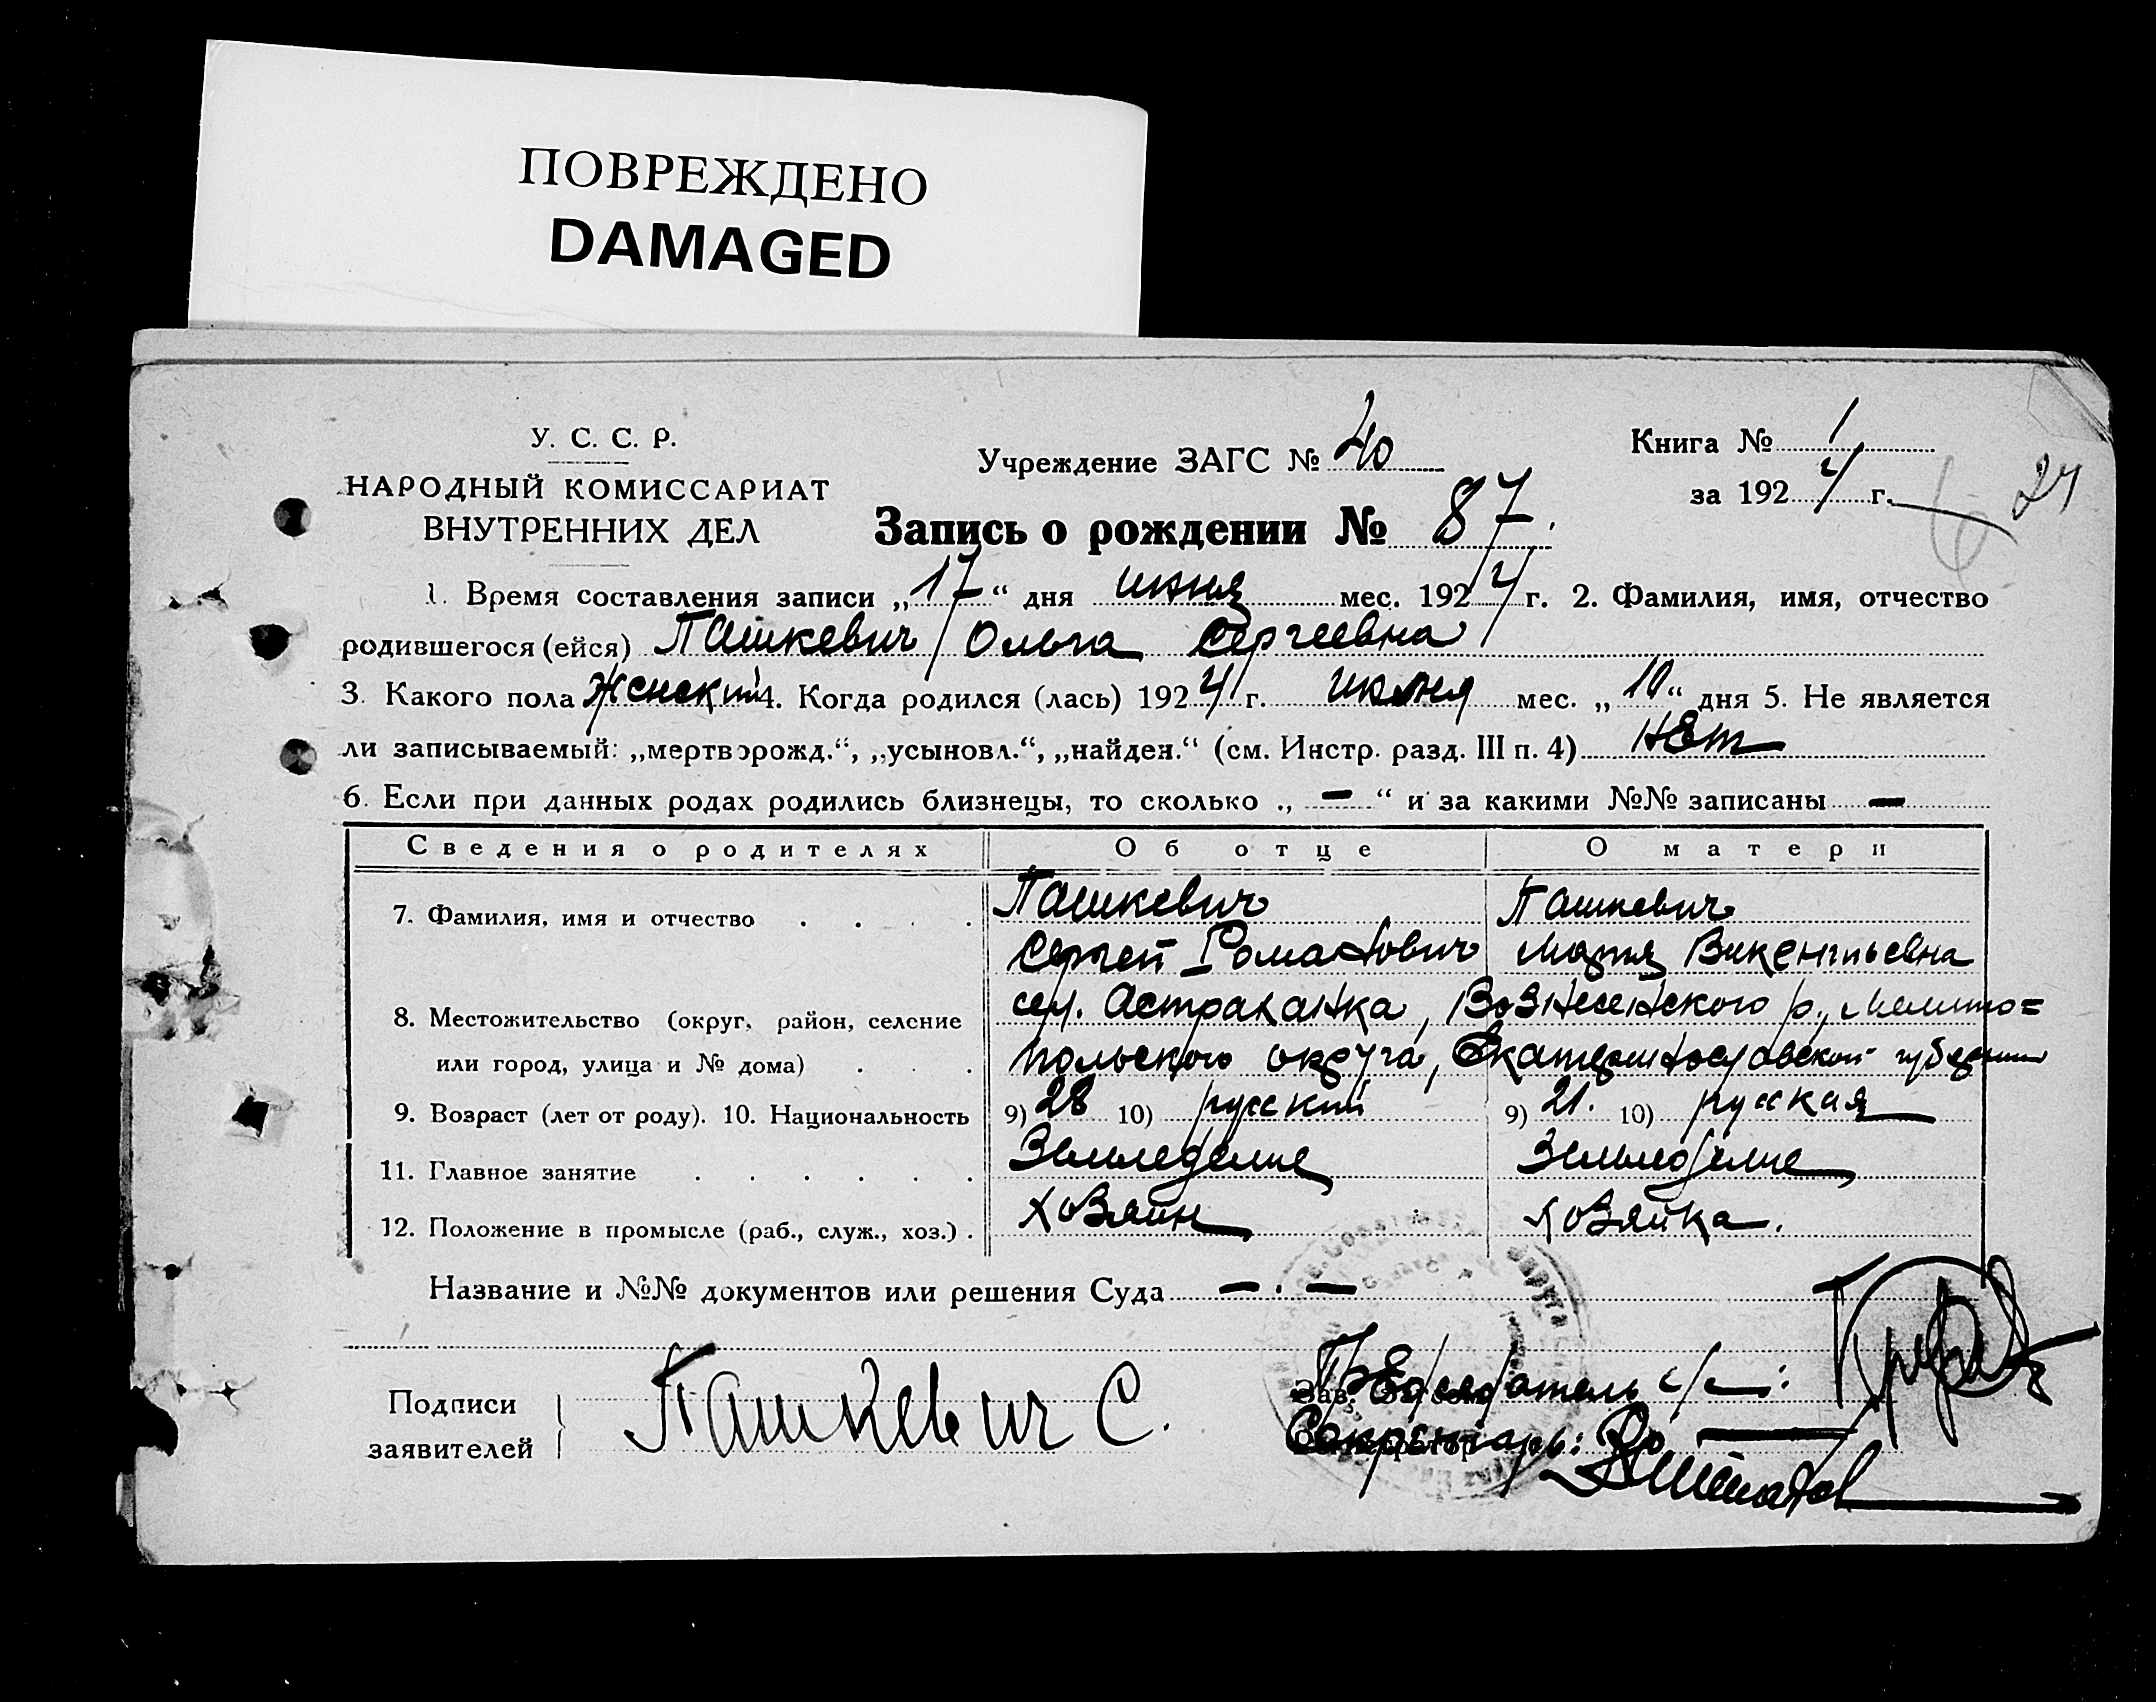 ПОВРЕЖДЕНО
DAMAGED
У. С. С. Р.
НАРОДНЫЙ КОМИССАРИАТ
ВНУТРЕННИХ ДЕЛ
Учреждение ЗАГС № 40
Книга № 1
за 1924 г.
24
Запись о рождении № 87.
1. Время составления записи „17“ дня июня мес. 1924 г. 2. Фамилия, имя, отчество
родившегося (ейся) Пашкевич Ольга Сергеевна
3. Какого пола Женский 4. Когда родился (лась) 1924 г. июня мес. „10“ дня 5. Не является
ли записываемый: „мертворожд.“, „усыновл.“, „найден.“ (см. Инстр. разд. III п. 4) нет
6. Если при данных родах родились близнецы, то сколько „ — “ и за какими №№ записаны —
Сведения о родителях Об отце О матери
7. Фамилия, имя и отчество . . . . Пашкевич Пашкевич
Сергей Романович Мария Викентьевна
8. Местожительство (округ, район, селение сел. Астраханка, Вознесенского р., Мелито=
или город, улица и № дома) . . . польского округа, Екатеринославской губернии
9. Возраст (лет от роду). 10. Национальность 9) 28 10) русский 9) 21. 10) русская
11. Главное занятие . . . . . . Земледелие Земледелие
12. Положение в промысле (раб., служ., хоз.) . хозяин хозяйка.
Название и №№ документов или решения Суда — . —
Подписи
заявителей
Пашкевич С.
Зав.
Председатель с/с:
Секретарь: